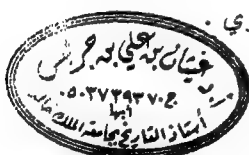 ي .
غيثان بن علي بن جريس
ج ٠٥٠٣٧٣٩٣٧٠
أبها
أستاذ التاريخ بجامعة الملك خالد